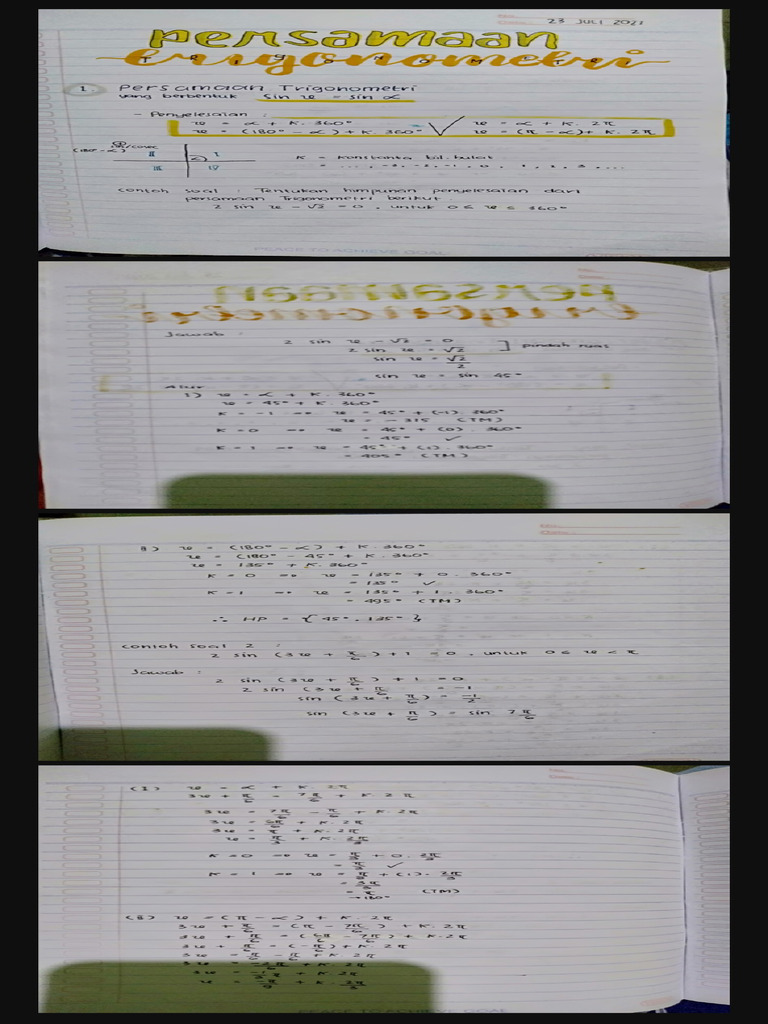 23 JULI 2021
persamaan
trigonometri
TRIGONOMETRI
1. Persamaan Trigonometri
yang berbentuk sin x = sin α
- Penyelesaian :
x = α + k . 360° x = α + k . 2π
x = (180° - α) + k . 360° x = (π - α) + k . 2π
sin/cosec
(180° - α) II I
III IV
k = konstanta bil. bulat
= ..., -3, -2, -1, 0, 1, 2, 3, ...
contoh soal : Tentukan himpunan penyelesaian dari
persamaan Trigonometri berikut.
2 sin x - √2 = 0, untuk 0 ≤ x ≤ 360°
PEACE TO ACHIEVE GOAL
Jawab :
2 sin x - √2 = 0
2 sin x = √2 ] pindah ruas
sin x = √2/2
sin x = sin 45°
Alur
1) x = α + k . 360°
x = 45° + k . 360°
k = -1 => x = 45° + (-1) . 360°
x = -315 (TM)
k = 0 => x = 45° + (0) . 360°
= 45° ✓
k = 1 => x = 45° + (1) . 360°
= 405° (TM)
x = (180° - α) + k . 360°
x = (180° - 45° + k . 360°
x = 135° + k . 360°
k = 0 => x = 135° + 0 . 360°
= 135° ✓
k = 1 => x = 135° + 1 . 360°
= 495° (TM)
∴ HP = { 45°, 135° }
contoh soal 2 :
2 sin (3x + π/6) + 1 = 0, untuk 0 ≤ x < π
Jawab :
2 sin (3x + π/6) + 1 = 0
2 sin (3x + π/6 = -1
sin (3x + π/6) = -1/2
sin (3x + π/6) = sin 7π/6
(I) x = α + k . 2π
3x + π/6 = 7π/6 + k . 2π
3x = 7π/6 - π/6 + k . 2π
3x = 6π/6 + k . 2π
3x = π + k . 2π
x = π/3 + k . 2π/3
k = 0 => x = π/3 + 0 . 2π/3
= π/3 ✓
k = 1 => x = π/3 + (1) . 2π/3
= 3π/3
= π (TM)
→ 180°
x = (π - α) + k . 2π
3x + π/6 = (π - 7π/6) + k . 2π
3x + π/6 = (6π/6 - 7π/6) + k . 2π
3x + π/6 = (-π/6) + k . 2π
3x = -π/6 - π/6 + k . 2π
3x = -2π/6 + k . 2π
3x = -1/3 π + k . 2π
x = -π/9 + k . 2π/3
PEACE TO ACHIEVE GOAL